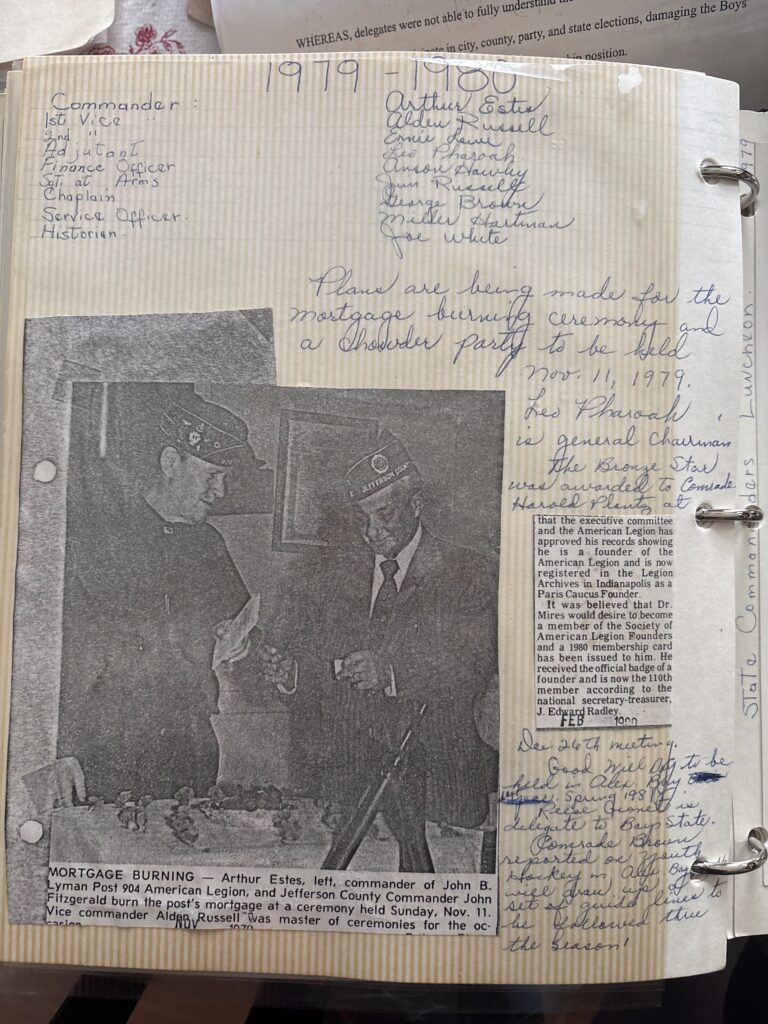 WHEREAS, delegates were not able to fully understand the
in city, county, party, and state elections, damaging the Boys
position.
1979 - 1980
Commander : Arthur Estes
1st Vice Alden Russell
2nd " Ernie Lowe
Adjutant Leo Pharoah
Finance Officer Anson Hawley
Sgt at Arms Jim Russell
Chaplain George Brown
Service Officer. Miller Hartman
Historian. Joe White
Plans are being made for the
mortgage burning ceremony and
a Chowder party to be held
Nov. 11, 1979.
Leo Pharoah
is general Chairman
The Bronze Star
was awarded to Comrade
Harold Plantz at
State Commanders Luncheon.
1979
JEFFERSON COUNTY
that the executive committee
and the American Legion has
approved his records showing
he is a founder of the
American Legion and is now
registered in the Legion
Archives in Indianapolis as a
Paris Caucus Founder.
It was believed that Dr.
Mires would desire to become
a member of the Society of
American Legion Founders
and a 1980 membership card
has been issued to him. He
received the official badge of a
founder and is now the 110th
member according to the
national secretary-treasurer,
J. Edward Radley.
FEB 1980
Dec 26th meeting.
Good Will Day to be
held in Alex Bay
Spring 1981.
is
delegate to Boys State.
Comrade Brown
reported on Youth
Hockey in Alex Bay
will draw up a
set of guide lines to
be followed thru
the season!
MORTGAGE BURNING — Arthur Estes, left, commander of John B.
Lyman Post 904 American Legion, and Jefferson County Commander John
Fitzgerald burn the post's mortgage at a ceremony held Sunday, Nov. 11.
Vice commander Alden Russell was master of ceremonies for the oc-
casion.
NOV 1979